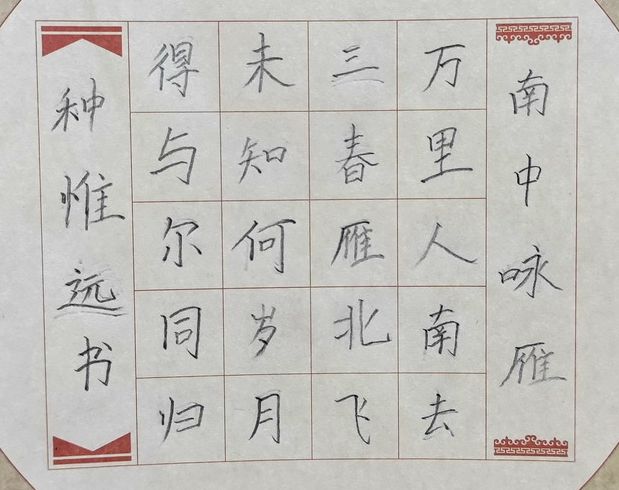 南中咏雁
万里人南去
三春雁北飞
未知何岁月
得与尔同归
种惟远书